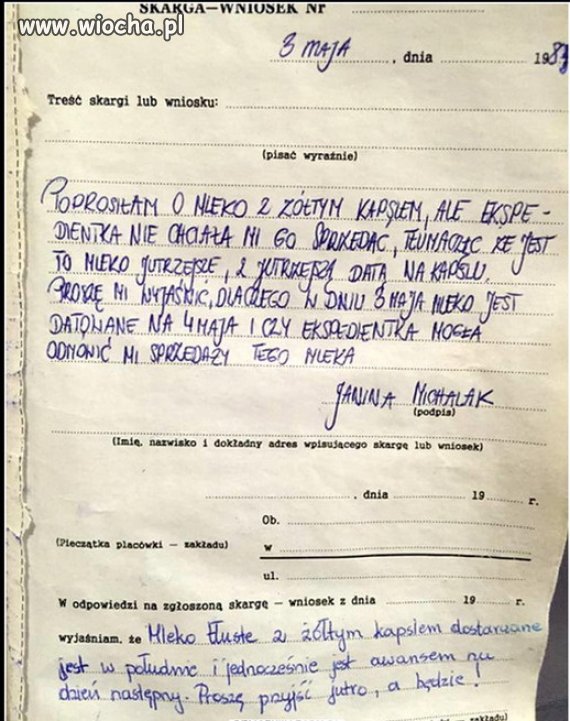 www.wiocha.pl
SKARGA—WNIOSEK Nr
3 MAJA , dnia 198
Treść skargi lub wniosku:
(pisać wyraźnie)
POPROSIŁAM O MLEKO Z ŻÓŁTYM KAPSLEM, ALE EKSPE-
DIENTKA NIE CHCIAŁA MI GO SPRZEDAĆ, TŁUMACZĄC ŻE JEST
TO MLEKO JUTRZEJSZE, Z JUTRZEJSZĄ DATĄ NA KAPSLU.
PROSZĘ MI WYJAŚNIĆ, DLACZEGO W DNIU 3 MAJA MLEKO JEST
DATOWANE NA 4 MAJA I CZY EKSPEDIENTKA MOGŁA
ODMÓWIĆ MI SPRZEDAŻY TEGO MLEKA
JANINA MICHALAK
(podpis)
(Imię, nazwisko i dokładny adres wpisującego skargę lub wniosek)
, dnia 19 r.
Ob.
(Pieczątka placówki — zakładu) w
ul.
W odpowiedzi na zgłoszoną skargę — wniosek z dnia 19 r.
wyjaśniam, że Mleko tłuste z żółtym kapslem dostarczane
jest w południe i jednocześnie jest awansem na
dzień następny. Proszę przyjść jutro, a będzie!
zakładu)